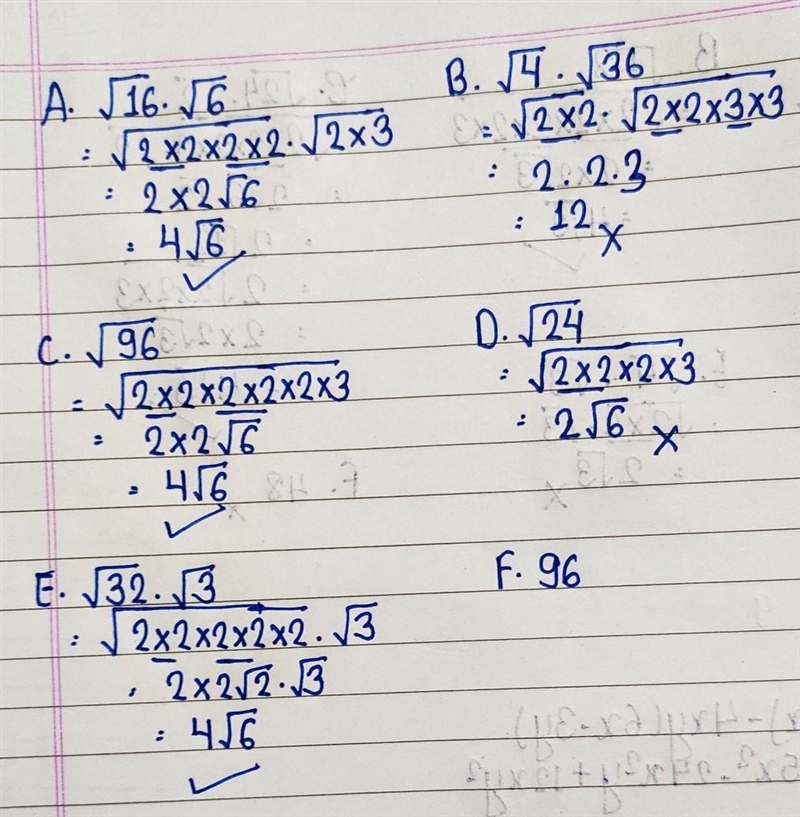 A. √16 · √6
= √2×2×2×2 · √2×3
= 2×2√6
= 4√6
✓
B. √4 · √36
= √2×2 · √2×2×3×3
= 2·2·3
= 12 x
C. √96
= √2×2×2×2×2×3
= 2×2√6
= 4√6
✓
D. √24
= √2×2×2×3
= 2√6 x
E. √32 · √3
= √2×2×2×2×2 · √3
= 2×2√2 · √3
= 4√6
✓
F. 96